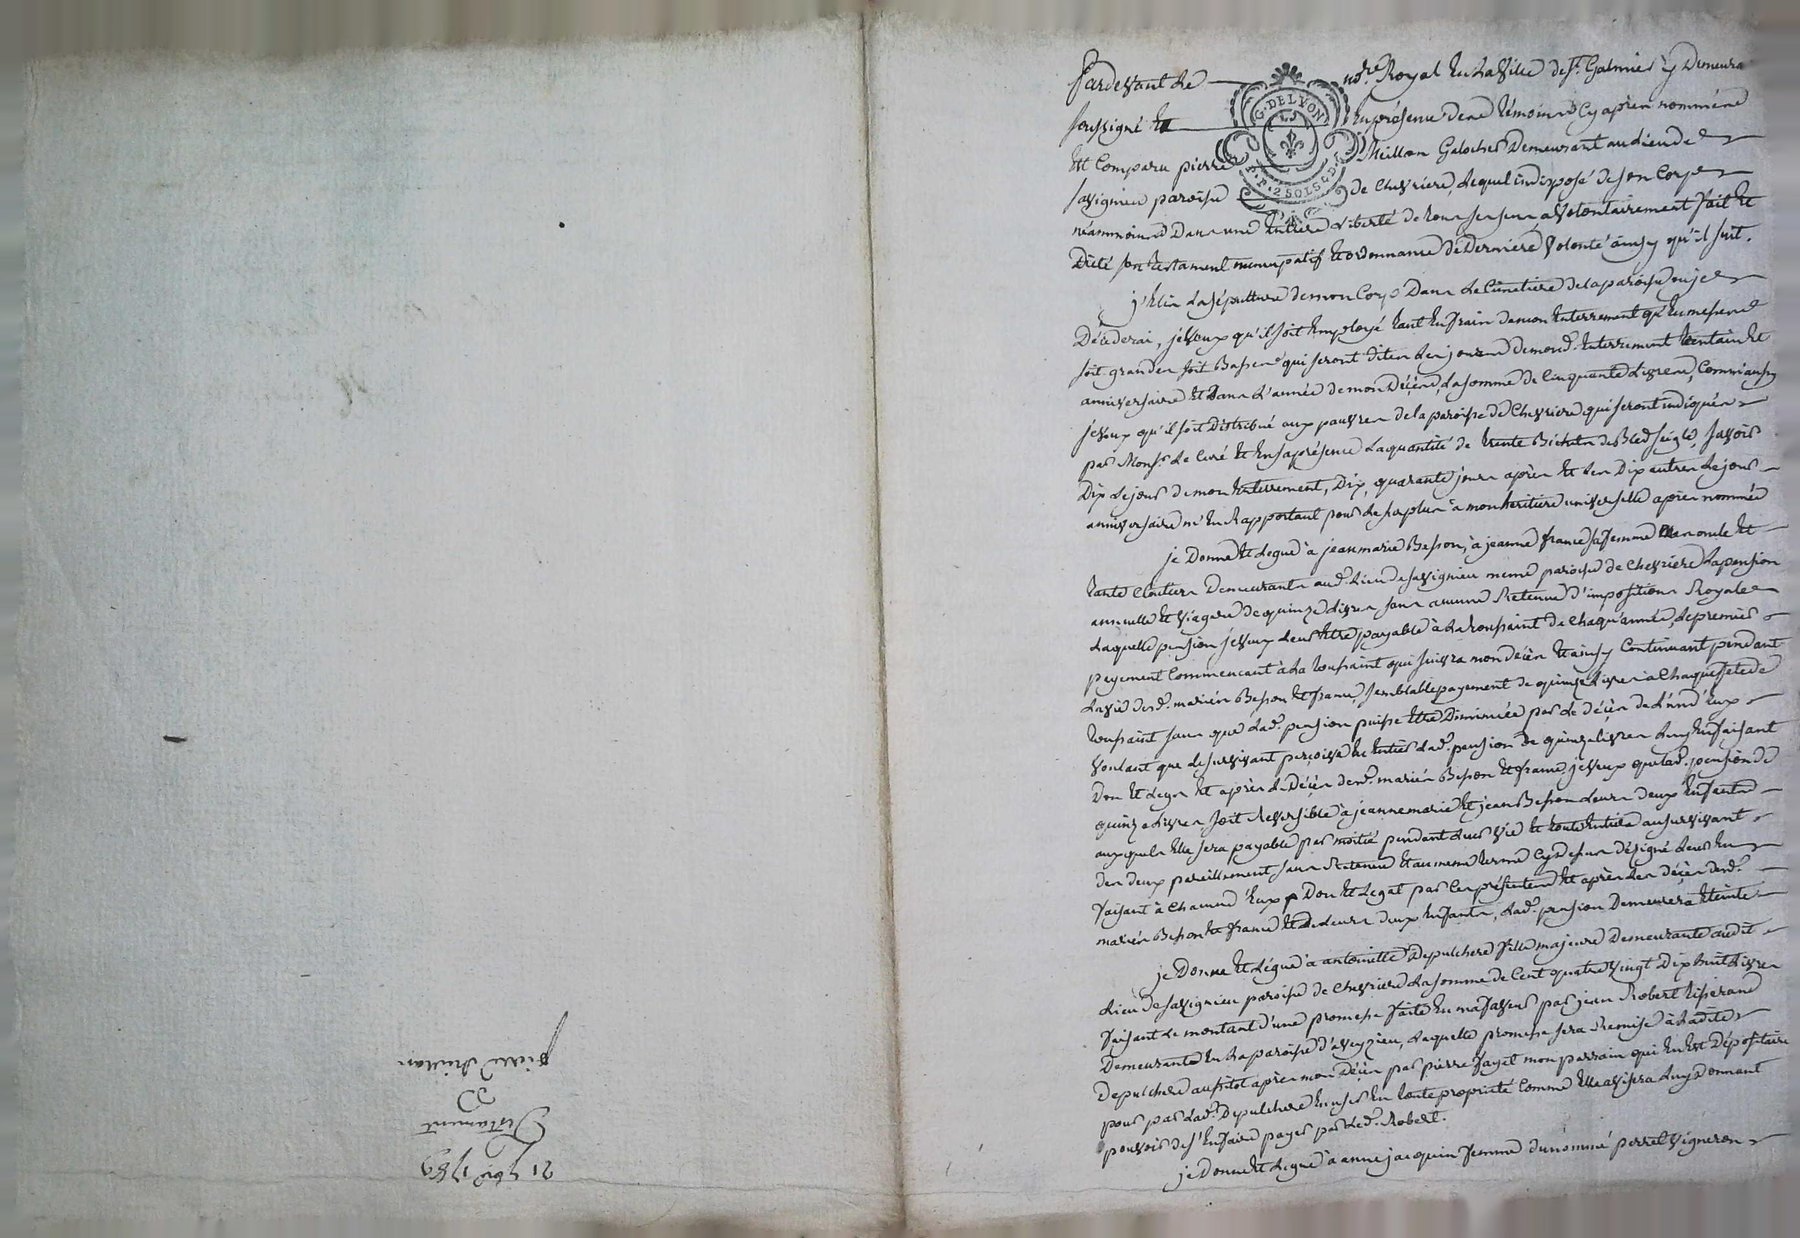 Pardevant le no.re Royal en la ville de St. Galmier y demeura
soussigné et en présence de témoins cy après nommés
Est comparu pierre Meillon Galocher demeurant au lieu de
savigneu paroisse de Chevriere, lequel indisposé de son Corps
néammoins dans une entiere liberté de tous ses sens, a volontairement fait et
dicté son testament nuncupatif et ordonnance de derniere volonté ainsy qu'il suit.
j'Elis la sépulture de mon Corps dans le Cimetiere de la paroisse ou je
décederai, je veux qu'il soit employé tant en frais de mon enterrement qu'en messes
soit grandes soit Basses qui seront dites les jours de mond. enterrement trentain et
anniversaire et dans l'année de mon décès, la somme de Cinquante livres, Comm'aussy
je veux qu'il soit distribué aux pauvres de la paroisse de Chevriere qui seront indiqués
par Monsr. le Curé et en sa présence la quantité de trente Bichets de Bled seigle, savoir
dix le jour de mon enterrement, dix, quarante jours après et les dix autres le jour
anniversaire m'en rapportant pour le surplus à mon heritiere universelle après nommée
je donne et legue à jean marie Besson, à jeanne france sa femme mes oncle et
tante Cloutier demeurants aud. lieu de savigneu meme paroisse de Chevriere la pension
annuelle et viagere de quinze livres sans aucune retenue d'impositions Royales
laquelle pension je veux leur être payable à la toussaint de Chaqu'année, le premier
payement Commencant à la toussaint qui suivra mon décès et ainsy Continuant pendant
la vie desd. mariés Besson et france, semblable payement de quinze livres à Chaque fete de
toussaint sans que lad. pension puisse être diminuée par le décès de l'un d'eux
voulant que le survivant perçoive en entier lad. pension de quinze livres luy en faisant
don et legs et après le décès desd. mariés Besson et france, je veux que lad. pension de
quinze livres soit reversible à jeanne marie et jean Besson leurs deux enfants
auxquels elle sera payable par moitié pendant leur vie et toute entiere au survivant
des deux pareillement sans retenue et au meme terme cy dessus désigné leur en
faisant à chacun d'eux don et legat par ces présentes et après les décès desd.
mariés Besson et france et de leurs deux enfants, lad. pension demeurera éteinte
je donne et légue à antoinette depulchere fille majeure demeurante audit
lieu de savigneu paroisse de Chevriere la somme de Cent quatre vingt dix huit livres
faisant le montant d'une promesse faite en ma faveur par jean Robert tisserand
demeurante en la paroisse d'aveyzieu, laquelle promesse sera remise à ladite
depulchere aussitot après mon décès par pierre fayet mon parrain qui en est dépositaire
pour par lad. depulchere en user en toute propriété Comme elle avisera luy donnant
pouvoir de s'en faire payer par led. Robert.
je donne et legue à anne jacquin femme du nommé perret vigneron
G. DE LYON
P. P. 2 SOLS 4 D.
21 7bre 1789
Testament
de
pierre Meillon